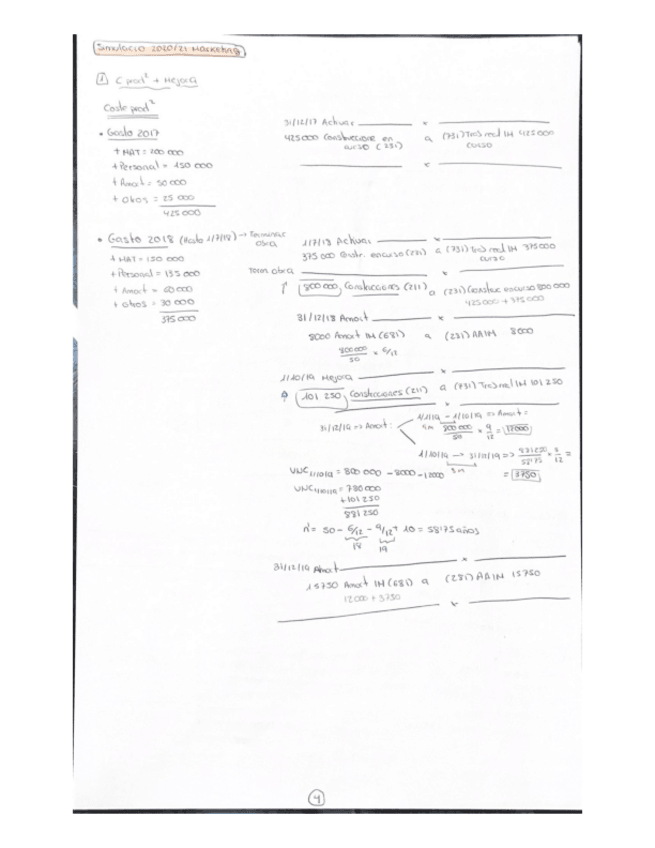 Simulacio 2020/21 Marketing
1 C prod² + Mejora
Coste prod²
• Gasto 2017
+ MAT = 200 000
+ Personal = 150 000
+ Amort = 50 000
+ Otros = 25 000
425 000
31/12/17 Activar x
425 000 Construccione en curso (231) a (731) Tros real IM curso 425 000
x
• Gasto 2018 (Hasta 1/7/18) → Terminar obra
+ MAT = 150 000
+ Personal = 135 000
+ Amort = 60 000
+ Otros = 30 000
375 000
1/7/18 Activar x
375 000 Constr. en curso (231) a (731) Tros real IM curso 375 000
obra x
800 000 Construcciones (211) a (231) Construc en curso 800 000
425 000 + 375 000
31/12/18 Amort x
8000 Amort IM (681) a (281) AAIM 8000
800 000 / 50 x 6/12
1/10/19 Mejora x
101 250 Construcciones (211) a (731) Tros real IM 101 250
x
31/12/19 => Amort:
1/1/19 - 1/10/19 => Amort =
9m 800 000 / 50 x 9/12 = 12000
1/10/19 → 31/12/19 => 881 250 / 58'75 x 3/12 =
3m = 3750
VNC 1/10/19 = 800 000 - 8000 - 12000
VNC 1/10/19 = 780 000
+ 101 250
881 250
n' = 50 - 6/12 - 9/12 + 10 = 58'75 años
18 19
31/12/19 Amort x
15 750 Amort IM (681) a (281) AAIM 15750
12 000 + 3750
x
4